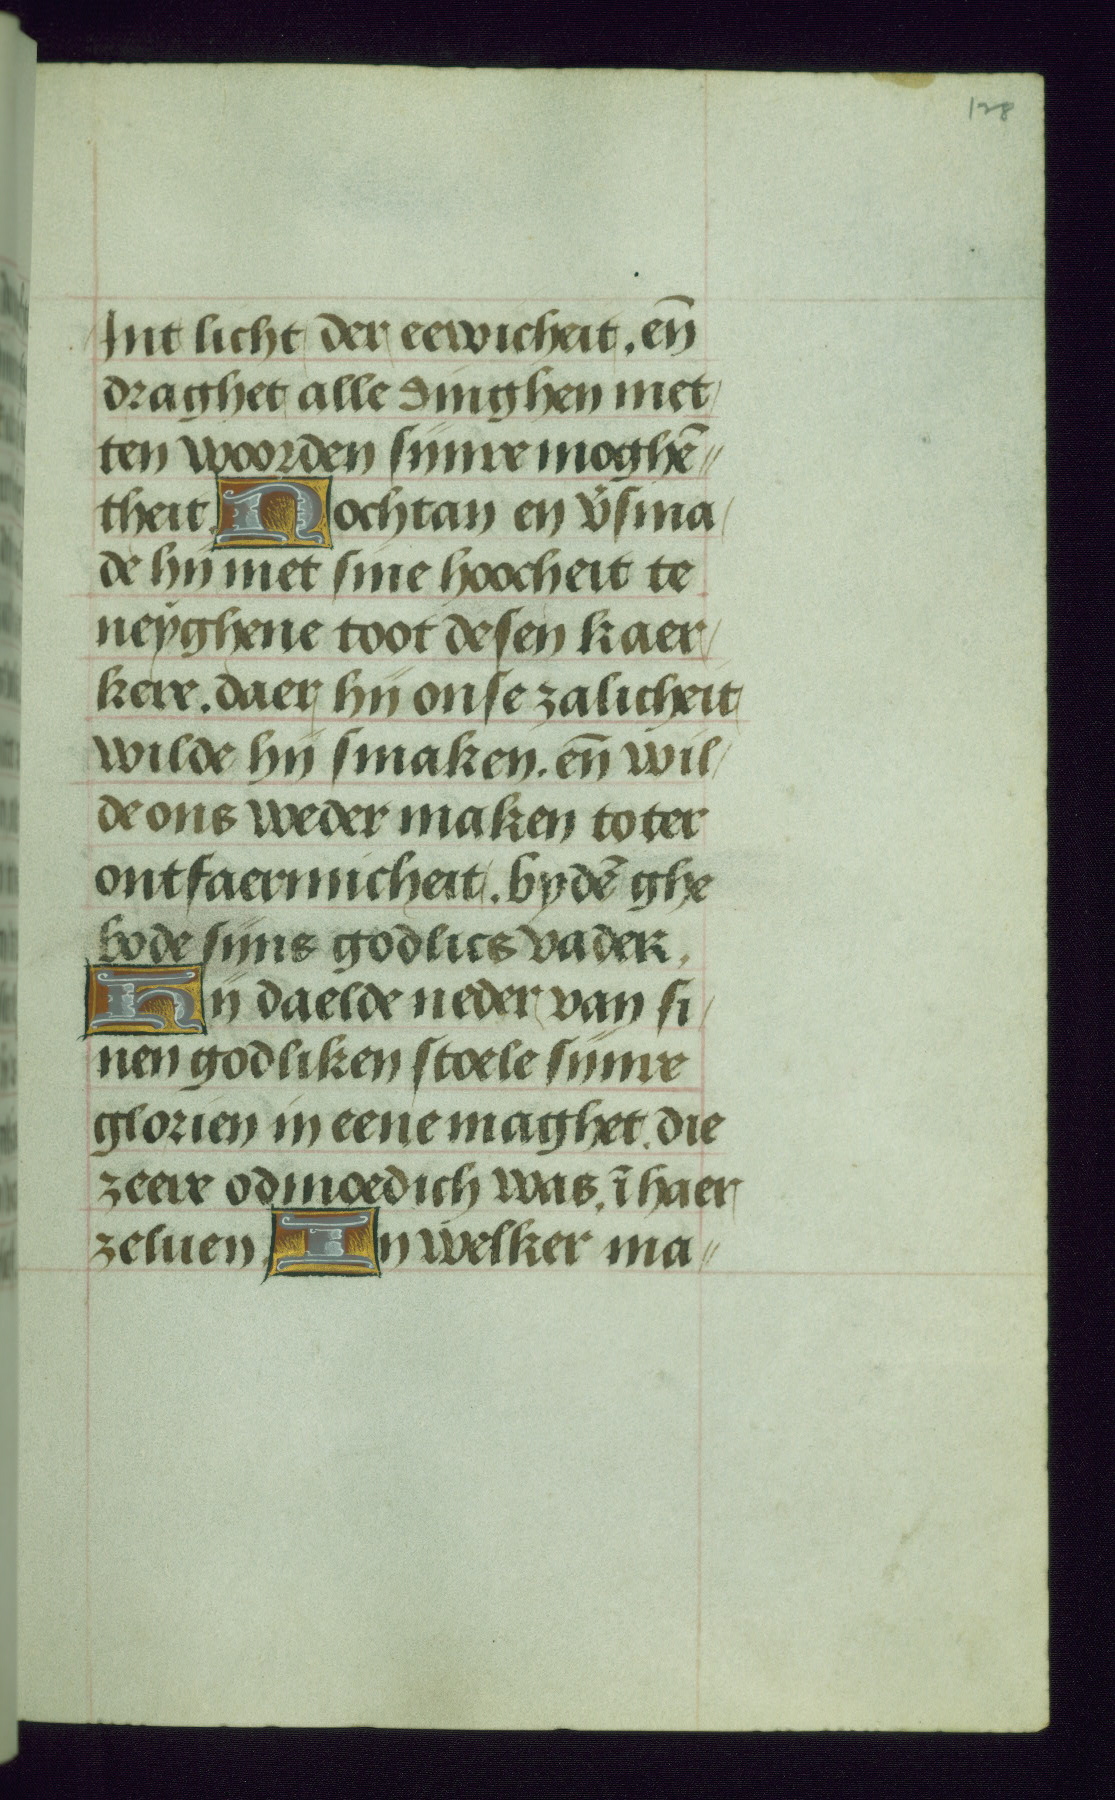 128
Int licht der eewicheit. en̄
draghet alle dinghen met
ten woorden sijnre moghē⸗
theit. Nochtan en v̄sma
de hij met sine hoocheit te
neÿghene toot desen kaer
kere. daer hij onse zalicheit
wilde hij smaken. en̄ wil
de ons weder maken toter
ontfaermicheit. by dē ghe
bode sijns godlics vader.
Hij daelde neder van si
nen godliken stoele sijnre
glorien in eene maghet. die
zeere odmoedich was. ī haer
zeluen. In welker ma⸗